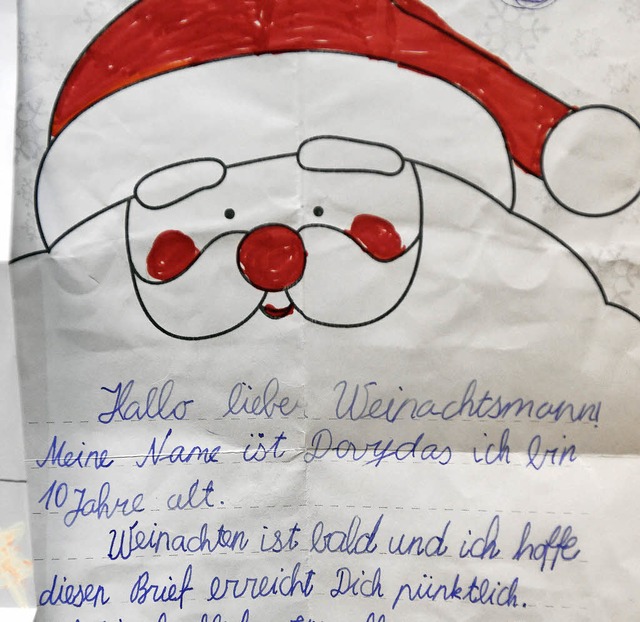 Hallo lieber Weinachtsmann!
Meine Name ist Dovydas ich bin
10 Jahre alt.
Weinachten ist bald und ich hoffe
diesen Brief erreicht Dich pünktlich.